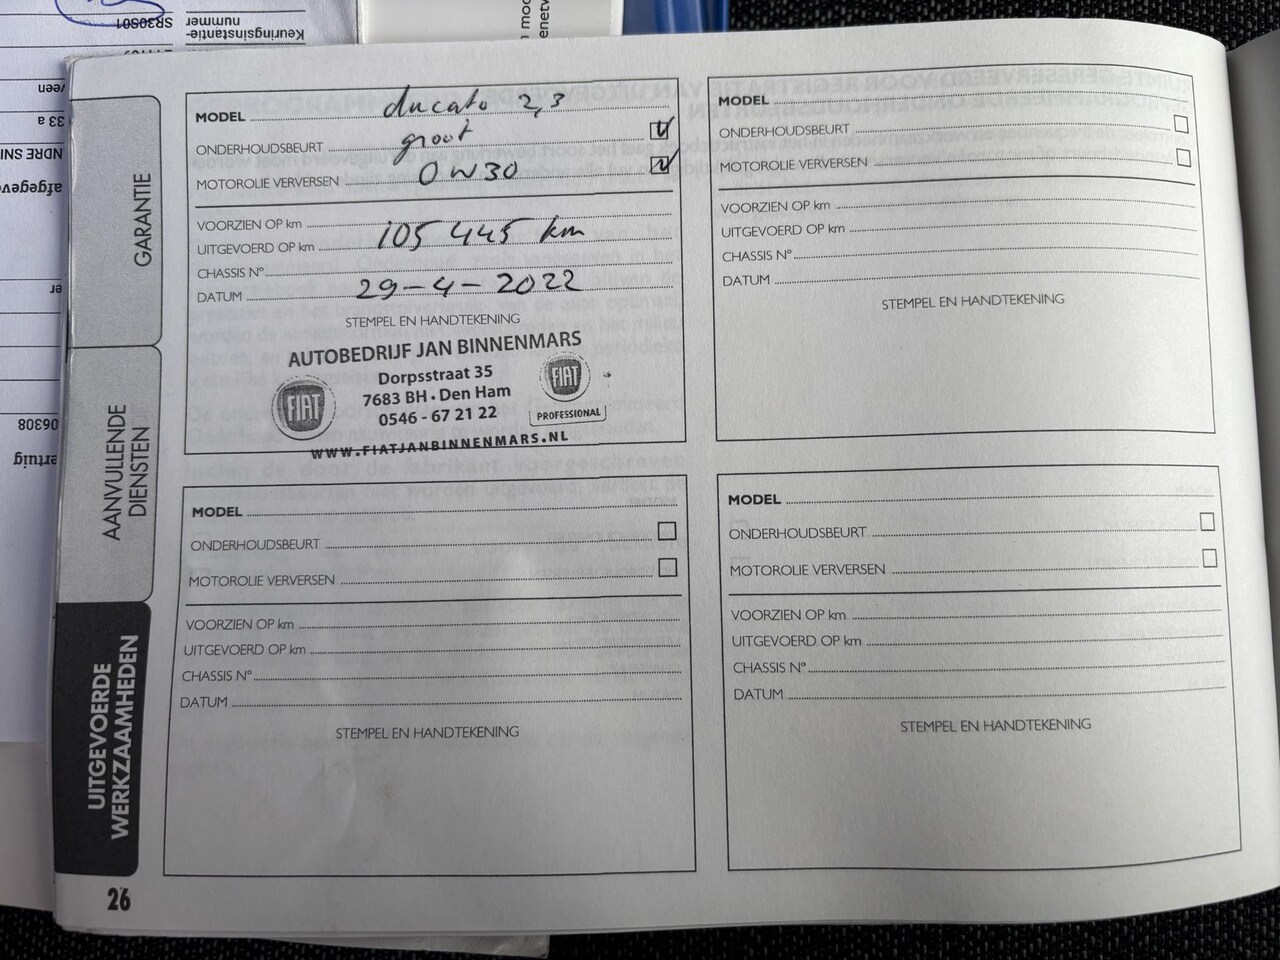 Keuringsinstantie-
nummer
SR30S01
GARANTIE
AANVULLENDE
DIENSTEN
UITGEVOERDE
WERKZAAMHEDEN
26
MODEL ducato 2,3
ONDERHOUDSBEURT groot
MOTOROLIE VERVERSEN 0W30
VOORZIEN OP km
UITGEVOERD OP km 105 445 km
CHASSIS N°
DATUM 29-4-2022
STEMPEL EN HANDTEKENING
AUTOBEDRIJF JAN BINNENMARS
Dorpsstraat 35
7683 BH • Den Ham
0546 - 67 21 22
FIAT
FIAT
PROFESSIONAL
WWW.FIATJANBINNENMARS.NL
MODEL
ONDERHOUDSBEURT
MOTOROLIE VERVERSEN
VOORZIEN OP km
UITGEVOERD OP km
CHASSIS N°
DATUM
STEMPEL EN HANDTEKENING
MODEL
ONDERHOUDSBEURT
MOTOROLIE VERVERSEN
VOORZIEN OP km
UITGEVOERD OP km
CHASSIS N°
DATUM
STEMPEL EN HANDTEKENING
MODEL
ONDERHOUDSBEURT
MOTOROLIE VERVERSEN
VOORZIEN OP km
UITGEVOERD OP km
CHASSIS N°
DATUM
STEMPEL EN HANDTEKENING